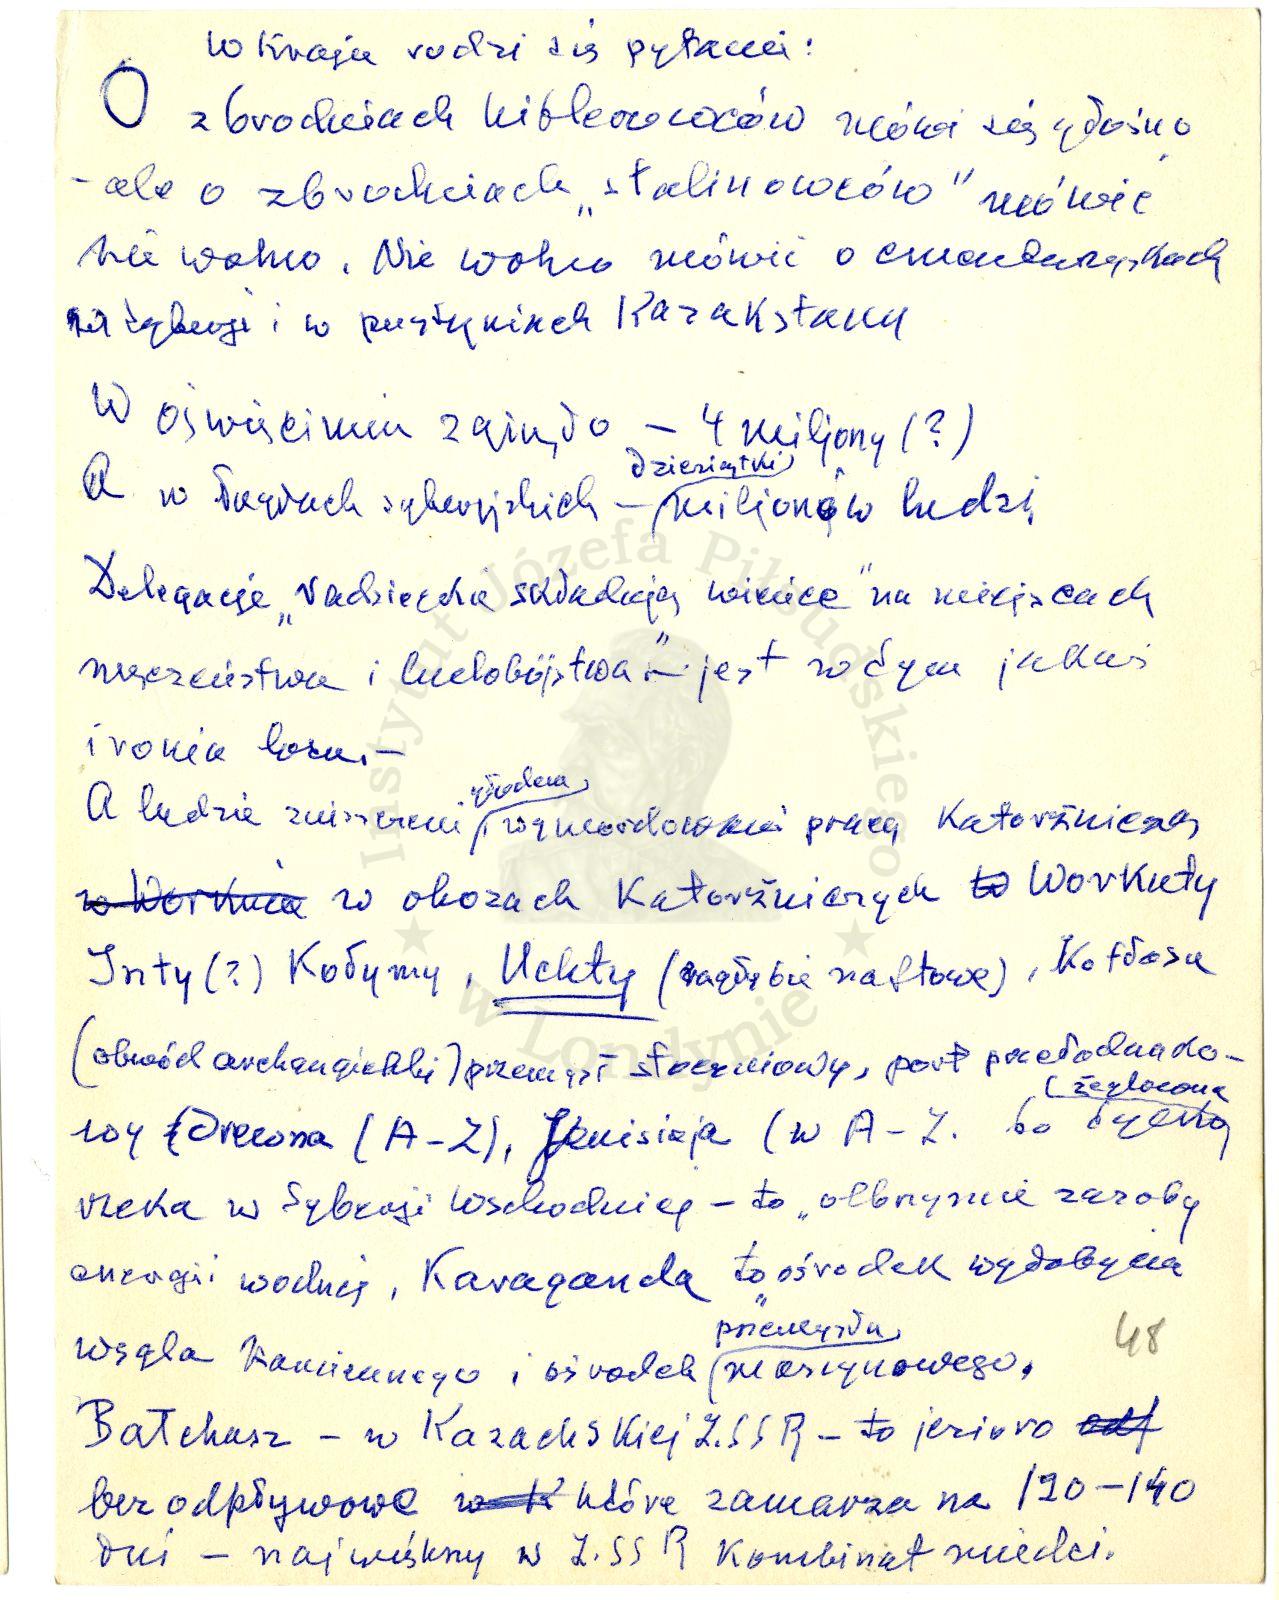 w Kraju rodzi się pytanie:
O zbrodniach hitlerowców mówi się głośno
- ale o zbrodniach „stalinowców" mówić
nie wolno. Nie wolno mówić o cmentarzyskach
na Syberji i w pustyniach Kazakstanu
W Oświęcimiu zginęło – 4 miljony (?)
A w łagrach syberyjskich – dziesiątki miljonów ludzi
Delegacje „radzieckie składają wieńce" na miejscach
męczeństwa i ludobójstwa" – jest w tym jakaś
ironia losu. –
A ludzie zniszczeni głodem, wymordowani pracą Katorżniczą
w obozach Katorżniczych Workuty
Inty (?) Kołymy, Uchty (zagłębie naftowe), Kotłasu
(obwód archangielski) przemysł stoczniowy, port przeładunko-
wy drewna (A-Z), Jenisieja (w A-Z. bo żeglowna
rzeka w Syberji Wschodniej – to „olbrzymie zasoby
energii wodnej, Karaganda to „ośrodek wydobycia
węgla Kamiennego i ośrodek przemysłu maszynowego.
48
Bałchasz – w Kazachskiej Z.SSR – to jezioro
bezodpływowe które zamarza na 120-140
dni – największy w Z.SSR Kombinat miedzi.
Instytut Józefa Piłsudskiego
w Londynie